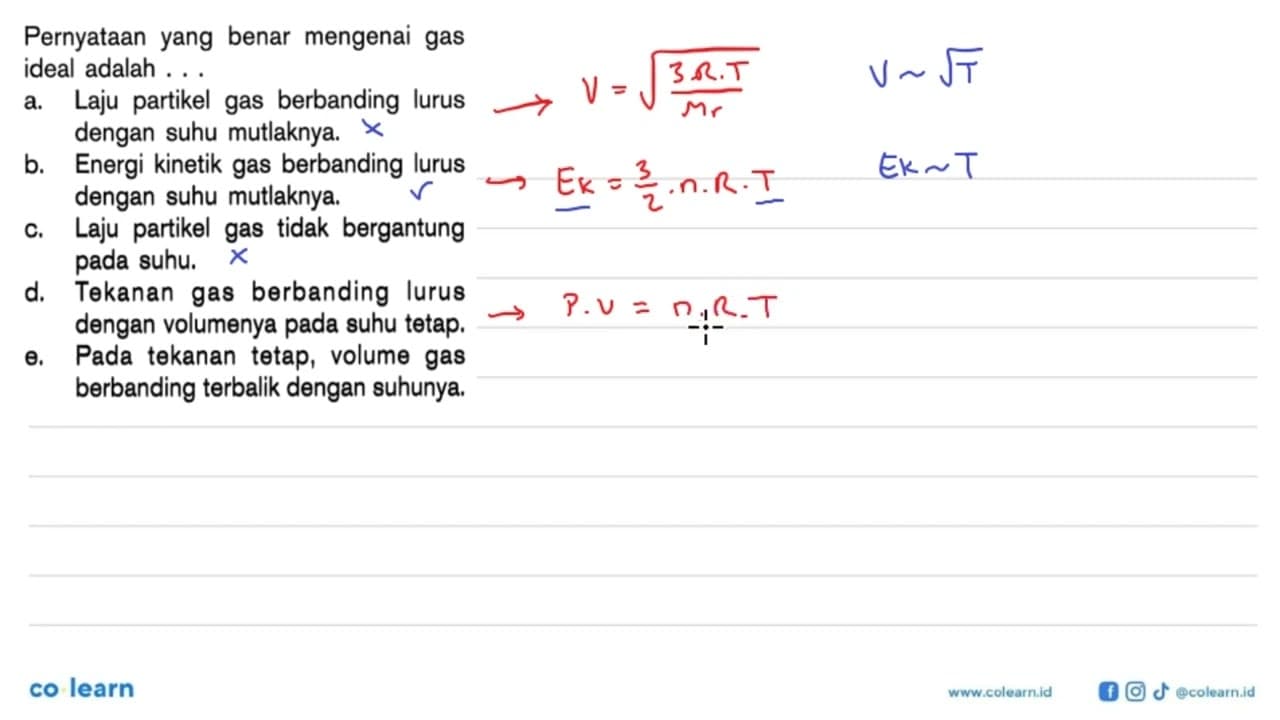 Pernyataan yang benar mengenai gas
ideal adalah . . .
a. Laju partikel gas berbanding lurus
dengan suhu mutlaknya. ×
b. Energi kinetik gas berbanding lurus
dengan suhu mutlaknya. √
c. Laju partikel gas tidak bergantung
pada suhu. ×
d. Tekanan gas berbanding lurus
dengan volumenya pada suhu tetap.
e. Pada tekanan tetap, volume gas
berbanding terbalik dengan suhunya.
→ V = √(3.R.T / Mr)
V ~ √T
→ Ek = 3/2 . n. R. T
Ek ~ T
→ P. V = n. R. T
co learn
www.colearn.id
@colearn.id